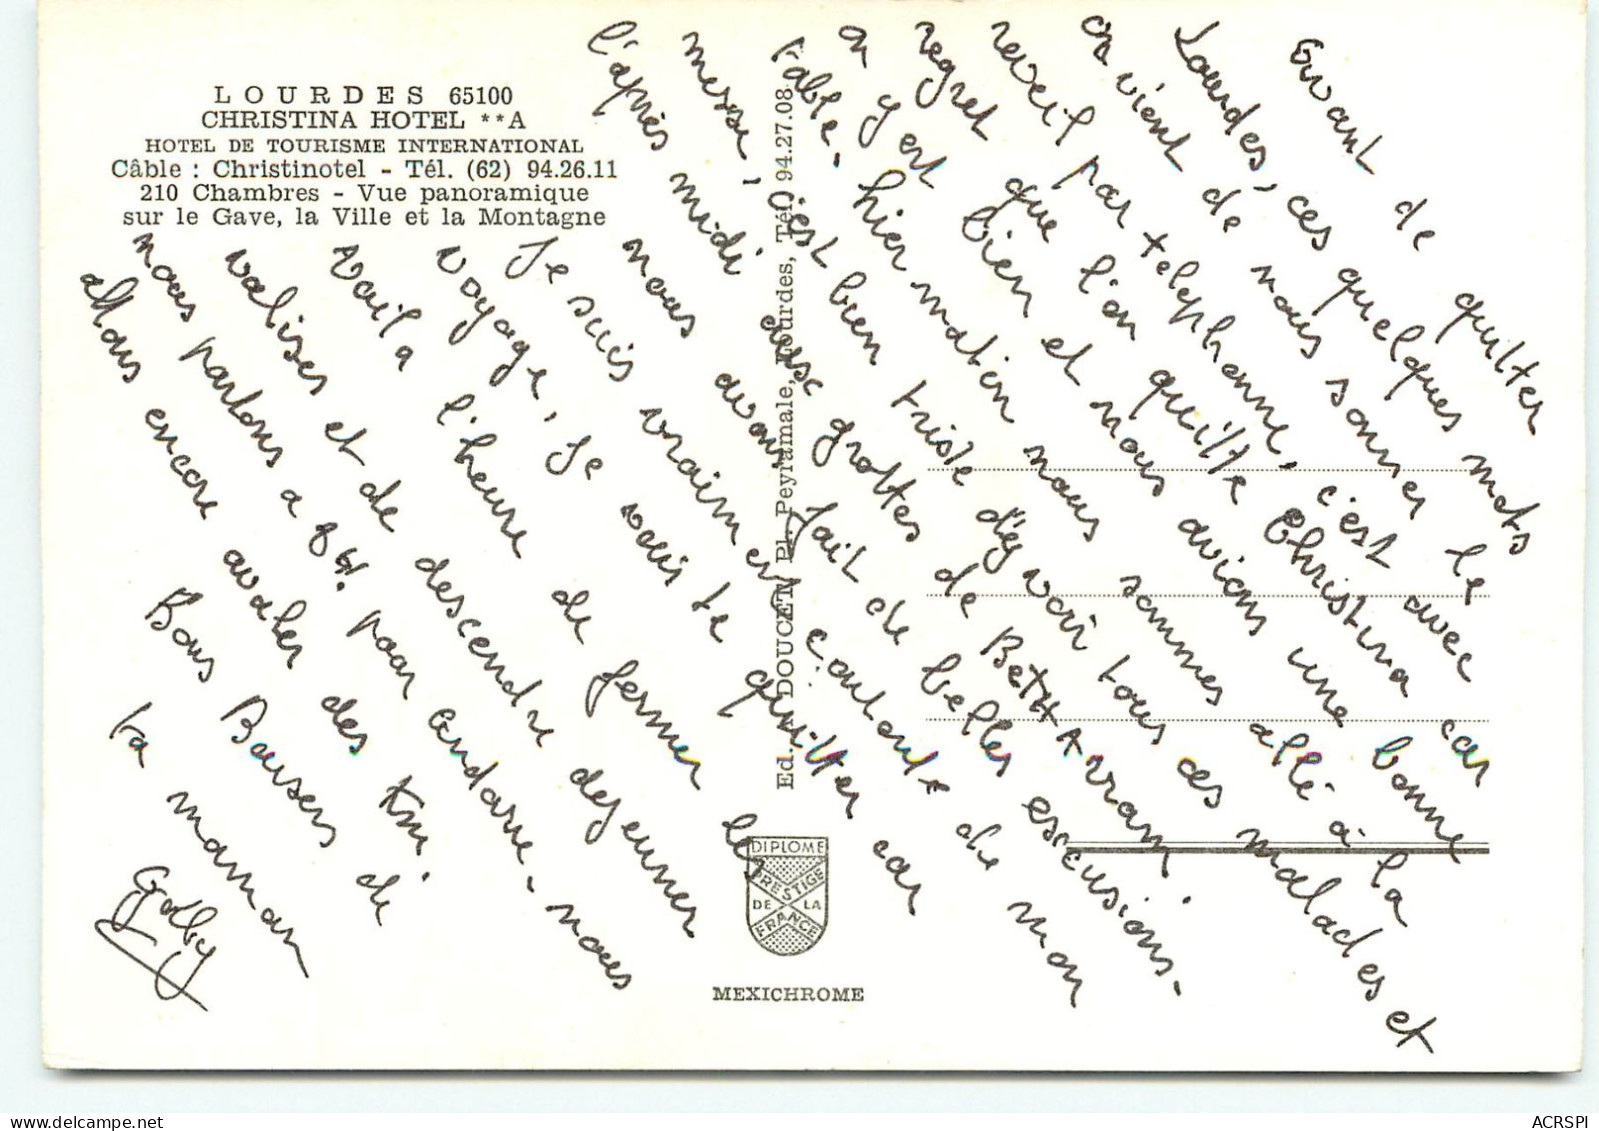 LOURDES 65100
CHRISTINA HOTEL **A
HOTEL DE TOURISME INTERNATIONAL
Câble : Christinotel - Tél. (62) 94.26.11
210 Chambres - Vue panoramique
sur le Gave, la Ville et la Montagne
Avant de quitter
Lourdes, ces quelques mots
on vient de nous sonner le
reveil par telephonne, c'est avec
regret que l'on quitte Christina car
on y est bien et nous avions une bonne
table. hier matin nous sommes allé à la
messe, c'est bien triste d'y voir tous ces malades et
l'après midi aux grottes de BETHAram.
nous avons fait de belles excusions.
Je suis vraiment contente de mon
voyage, Je vais te quitter car
voila l'heure de fermer les
valises et de descendre dejeuner
nous partons a 8H. pour Andorre - nous
allons encore avaler des km.
Bons Baisers de
ta maman
Gaby
Ed. DOUCET Pl. Peyramale, Lourdes, Tél. 94.27.08
DIPLOME
PRESTIGE
DE LA
FRANCE
MEXICHROME
ACRSPI